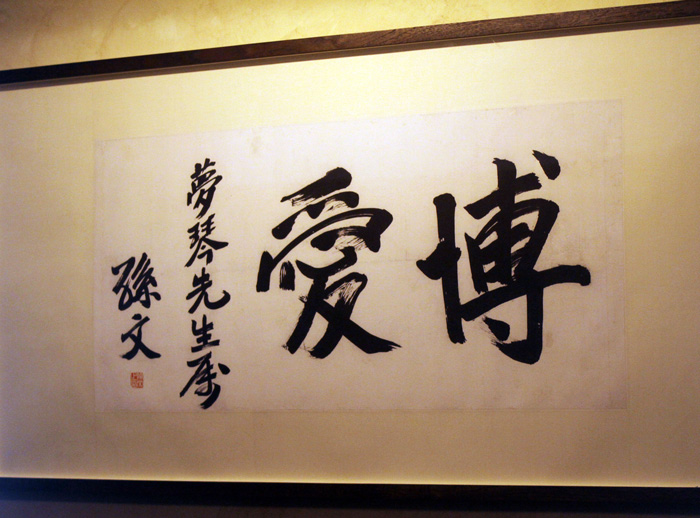 博愛
夢琴先生屬
孫文